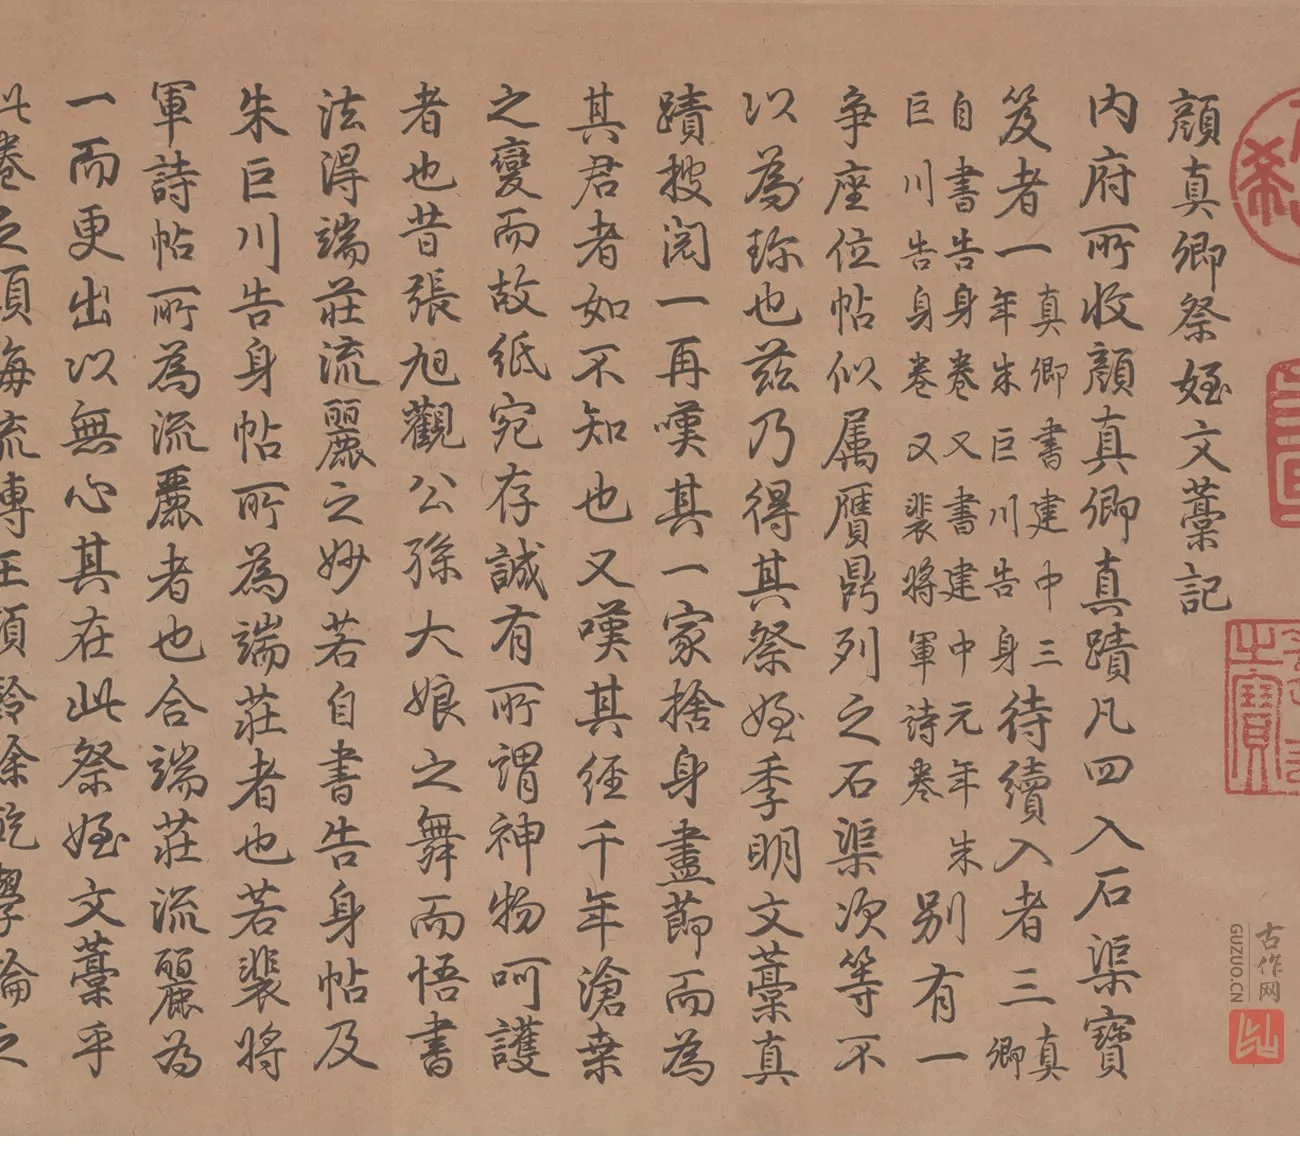 顔真卿祭姪文藁記
内府所收顔真卿真蹟凡四入石渠寶
笈者一真卿書建中三年朱巨川告身待續入者三真卿
自書告身卷又書建中元年朱巨川告身卷又裴將軍詩卷別有一
爭座位帖似属贋鼎列之石渠次等不
以為珎也茲乃得其祭姪季明文藁真
蹟搜閱一再嘆其一家捨身盡莭而為
其君者如不知也又嘆其經千年滄桒
之變而故紙宛存誠有所謂神物呵護
者也昔張旭觀公孫大娘之舞而悟書
法得端莊流麗之妙若自書告身帖及
朱巨川告身帖所為端莊者也若裴將
軍詩帖所為流麗者也合端莊流麗為
一而更出以無心其在此祭姪文藁乎
此卷之流傳王頊齡徐乾學之
之寶
古作网
GUZUO.CN